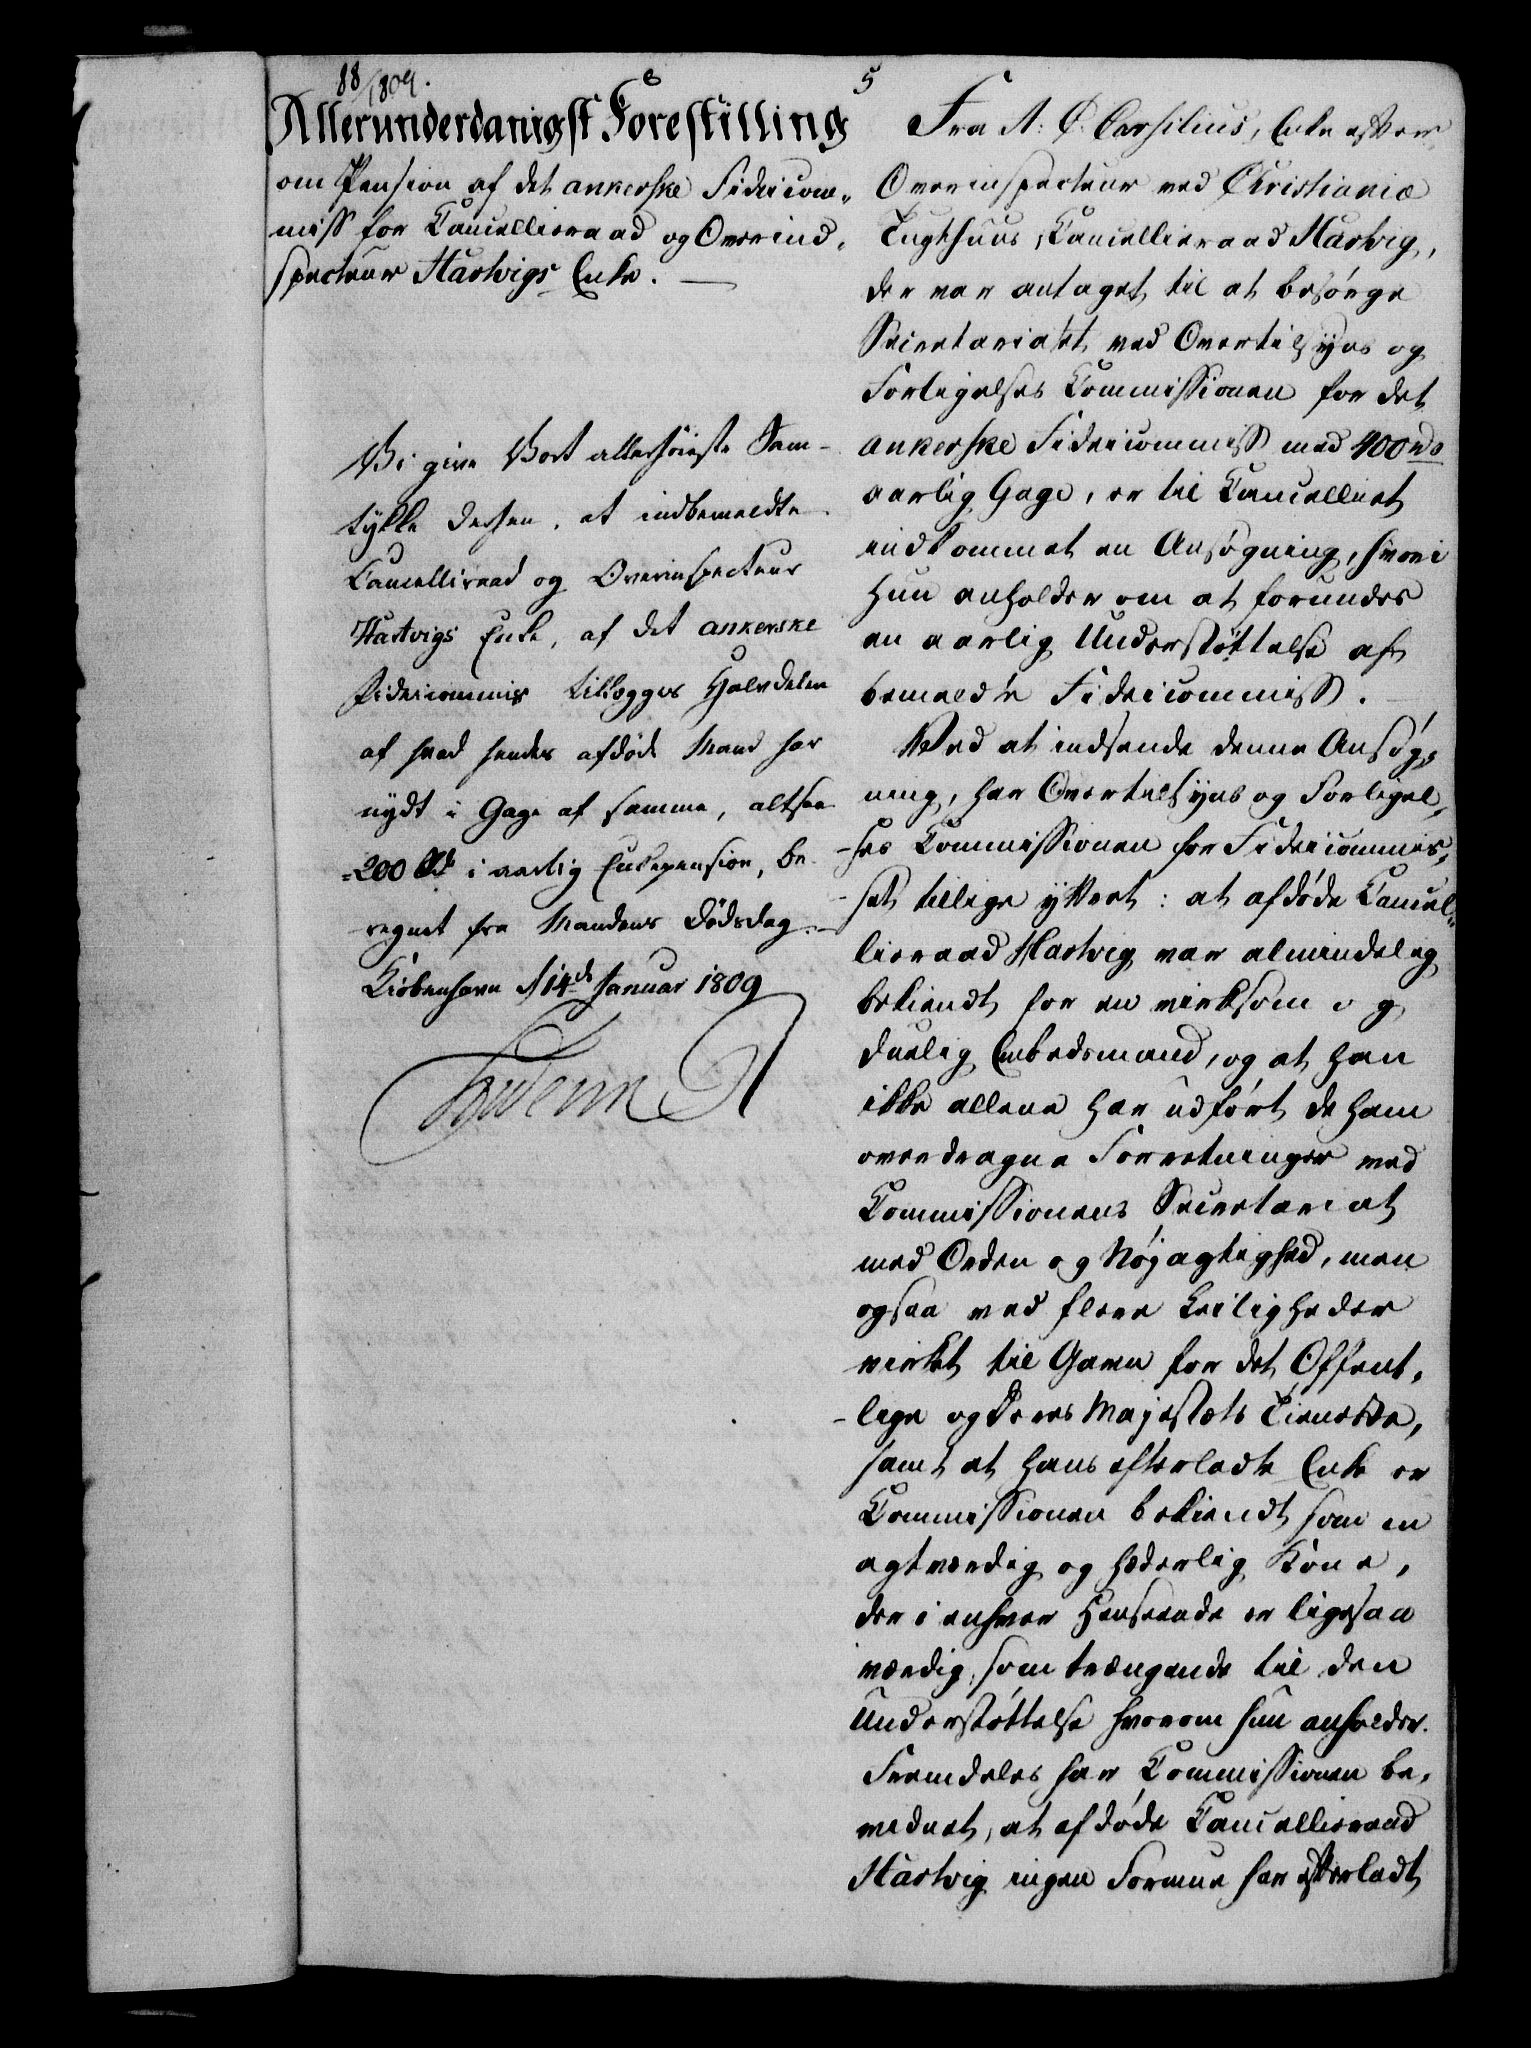 88/1809.
5
Allerunderdanigst Forestilling
om Pension af det ankerske Fideicom„
miss for Cancellieraad og Overind„
specteur Hartvigs Enke. —
Vi give Vort allerhöieste Sam-
tykke dertil, at indbemeldte
Cancelliraad og Overinspecteur
Hartvigs Enke, af det ankerske
Fideicommis tillægges Halvdelen
af hvad hendes afdöde Mand har
nydt i Gage af samme, altsaa
200 Rd i aarlig Enkepension, be-
regnet fra Mandens Dödsdag. —
Kiöbenhavn d 14de Januar 1809
Frederik R
Fra A: C: Carsilius, Enke efter
Overinspecteur ved Christianiæ
Tugthuus, Cancellieraad Hartvig,
der var antaget til at besörge
Secretariatet ved Overtilsyns og
Forligelses Commissionen for det
ankerske Fideicommiss med 400 rd
aarlig Gage, er til Cancelliet
indkommet en Ansögning, hvori
hun anholder om at forundes
en aarlig Understöttelse af
bemeldte Fideicommiss.
Ved at indsende denne Ansög„
ning, har Overtilsyns og Forligel„
ses Commissionen for Fideicommis„
set tillige yttret: at afdöde Cancel„
lieraad Hartvig var almindelig
bekiendt for en virksom og
duelig Embedsmand, og at han
ikke allene har udfört de ham
overdragne Forretninger ved
Commissionens Secretariat
med Orden og Nöjagtighed, men
ogsaa ved flere Leiligheder
virket til Gavn for det Offent„
lige og Deres Majestæts Tieneste,
samt at hans efterladte Enke er
Commissionen bekiendt som en
agtværdig og hæderlig Kone,
der i enhver Henseende er ligesaa
værdig, som trængende til den
Understöttelse hvorom hun anholder.
Fremdeles har Commissionen be„
vidnet, at afdöde Cancellieraad
Hartvig ingen Formue har efterladt